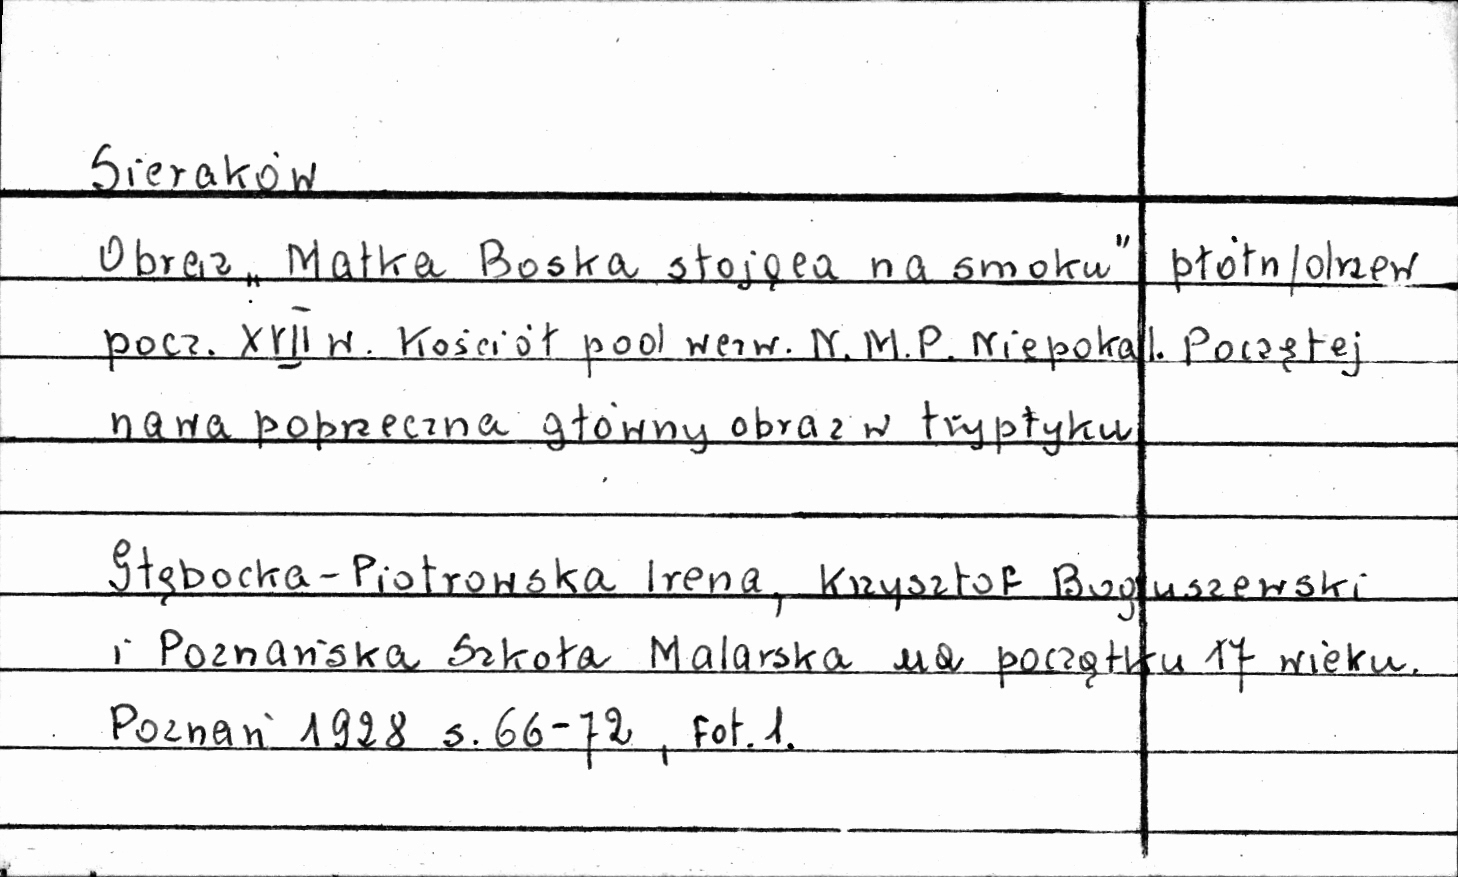 Sieraków
Obraz „Matka Boska stojąca na smoku" płótn/drzew
pocz. XVII w. Kościół pod wezw. N.M.P. Niepokal. Poczętej
nawa poprzeczna główny obraz w tryptyku
Głębocka-Piotrowska Irena, Krzysztof Boguszewski
i Poznańska Szkoła Malarska na początku 17 wieku.
Poznań 1928 s. 66-72, Fot. 1.